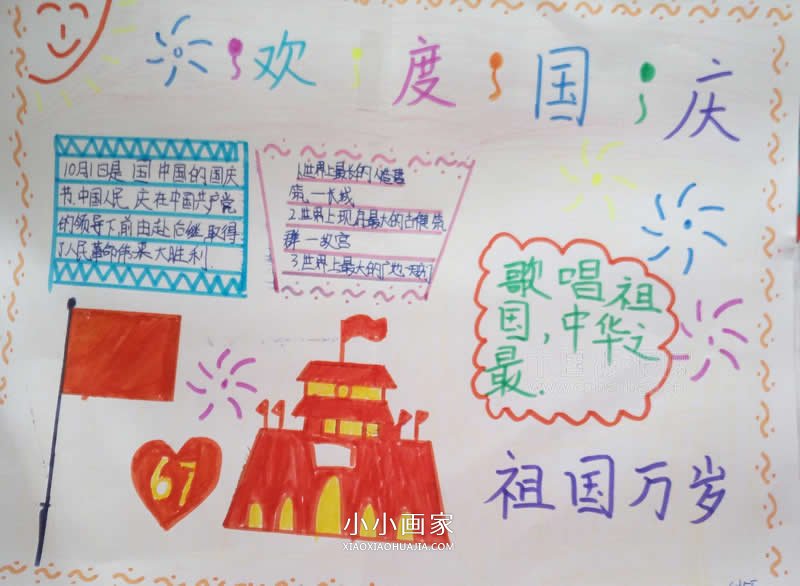 欢度国庆
10月1日是国中国的国庆
节.中国人民庆在中国共产党
的领导下前由赴后继取得
了人民革命伟来大胜利
1.世界上最长的人造建
筑一长城
2.世界上现存最大的古建筑
群一故宫
3.世界上最大的广地
歌唱祖
国,中华之
最.
67
祖国万岁
小小画家
XIAOXIAOHUAJIA.COM